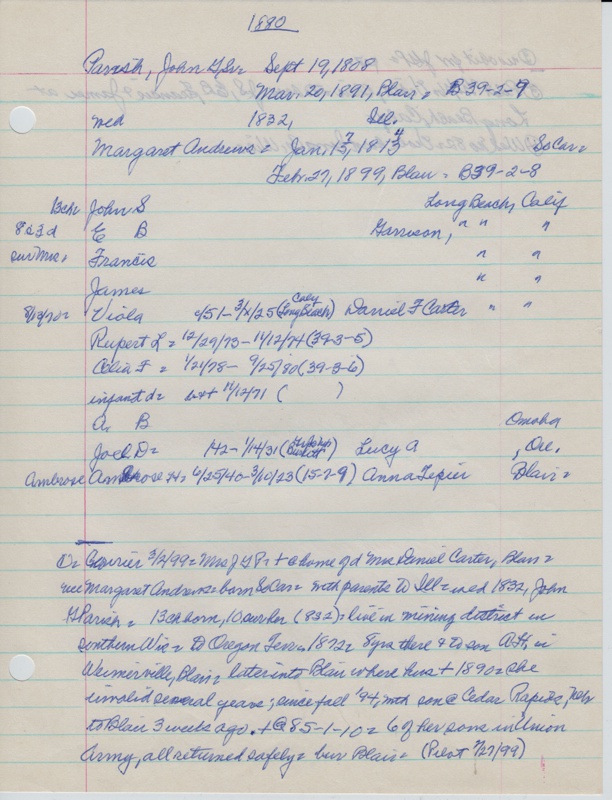 1880
Parish, John G Sr = Sept 19, 1808
Mar. 20, 1891, Blair = B39-2-9
wed 1832, Ill.
Margaret Andrews = Jan. 13, 1813 So Car =
Feb. 27, 1899, Blair = B39-2-8
13ch = John S Long Beach, Calif
8s 3d E B Garrison, " " "
sur Mrs = Francis " "
James " "
8/13/70 = Viola Calif (Long Beach) Daniel F Carter " "
Rupert L = 12/29/73 - 11/12/74 (39-3-5)
Celia F = 1/21/78 - 9/25/80 (39-3-6)
infant d = b & + 11/12/71 ( )
A. B Omaha
Joel D = 1/14/31 Lucy A , Ore.
Ambrose Ambrose H = 6/25/40 - 3/10/23 (15-7-9) Anna Blair =
O = Courier 3/2/99 = Mrs J G P = + @ home of d Mrs Daniel Carter, Blair =
nee Margaret Andrews = born So Car = with parents to Ill = wed 1832, John
G Parish = 13 ch born, 10 (8s2) = live in mining district in
southern Wis = to Oregon 1872 = 8 yrs there & to son A H, in
Blair = later into Blair where hus + 1890 = she
invalid several years; since fall '94, with son @ Cedar Rapids, Nebr
to Blair 3 weeks ago. + @ 85-1-10 = 6 of her sons in Union
Army, all returned safely = bur Blair = (Pilot 2/27/99)